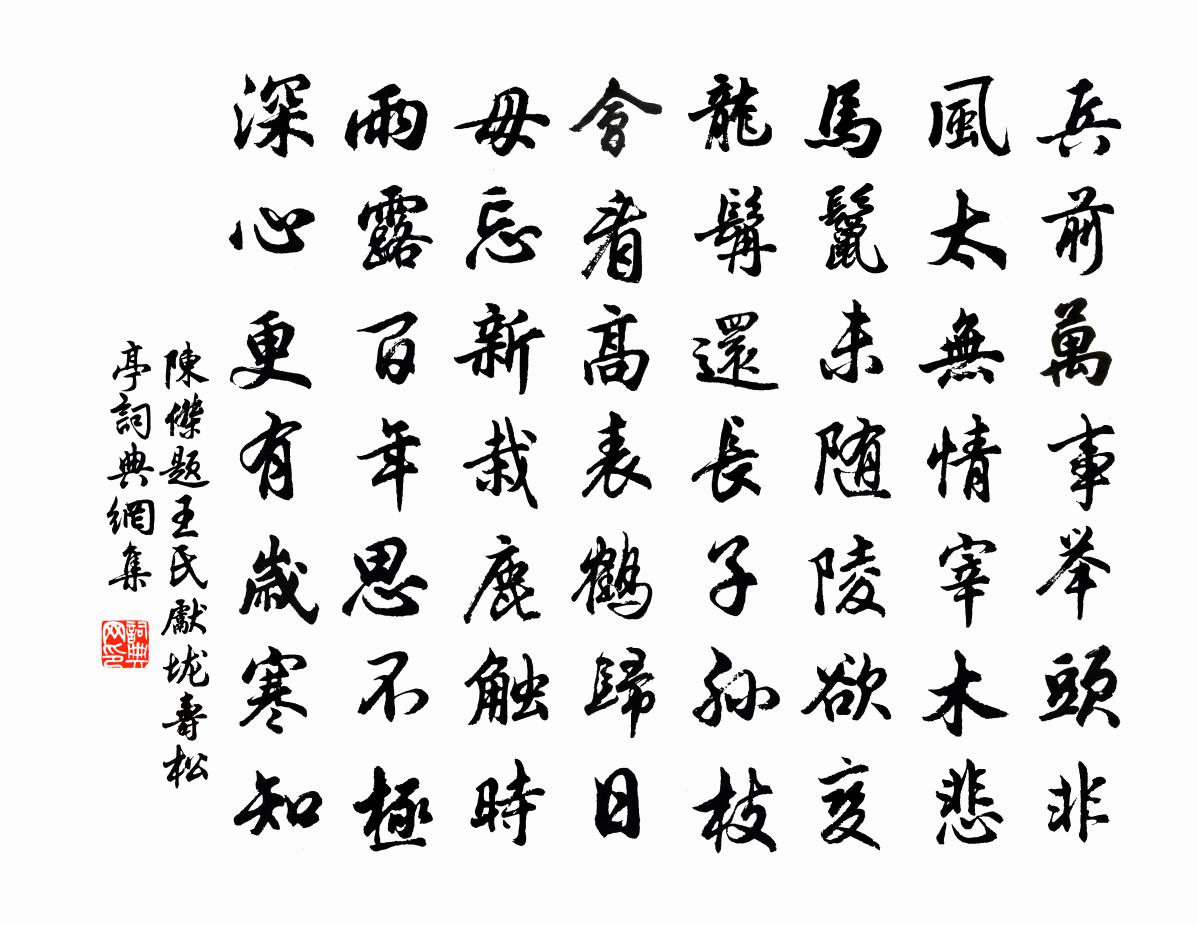 兵前萬事举頭非
風太無情宰木悲
馬鬣未随陵欲变
龍髯還長子孙枝
會看高表鶴歸日
毋忘新栽鹿触時
雨露百年思不極
深心更有歲寒知
陳傑题王氏獻垅壽松
亭詞典網集
詞典网印